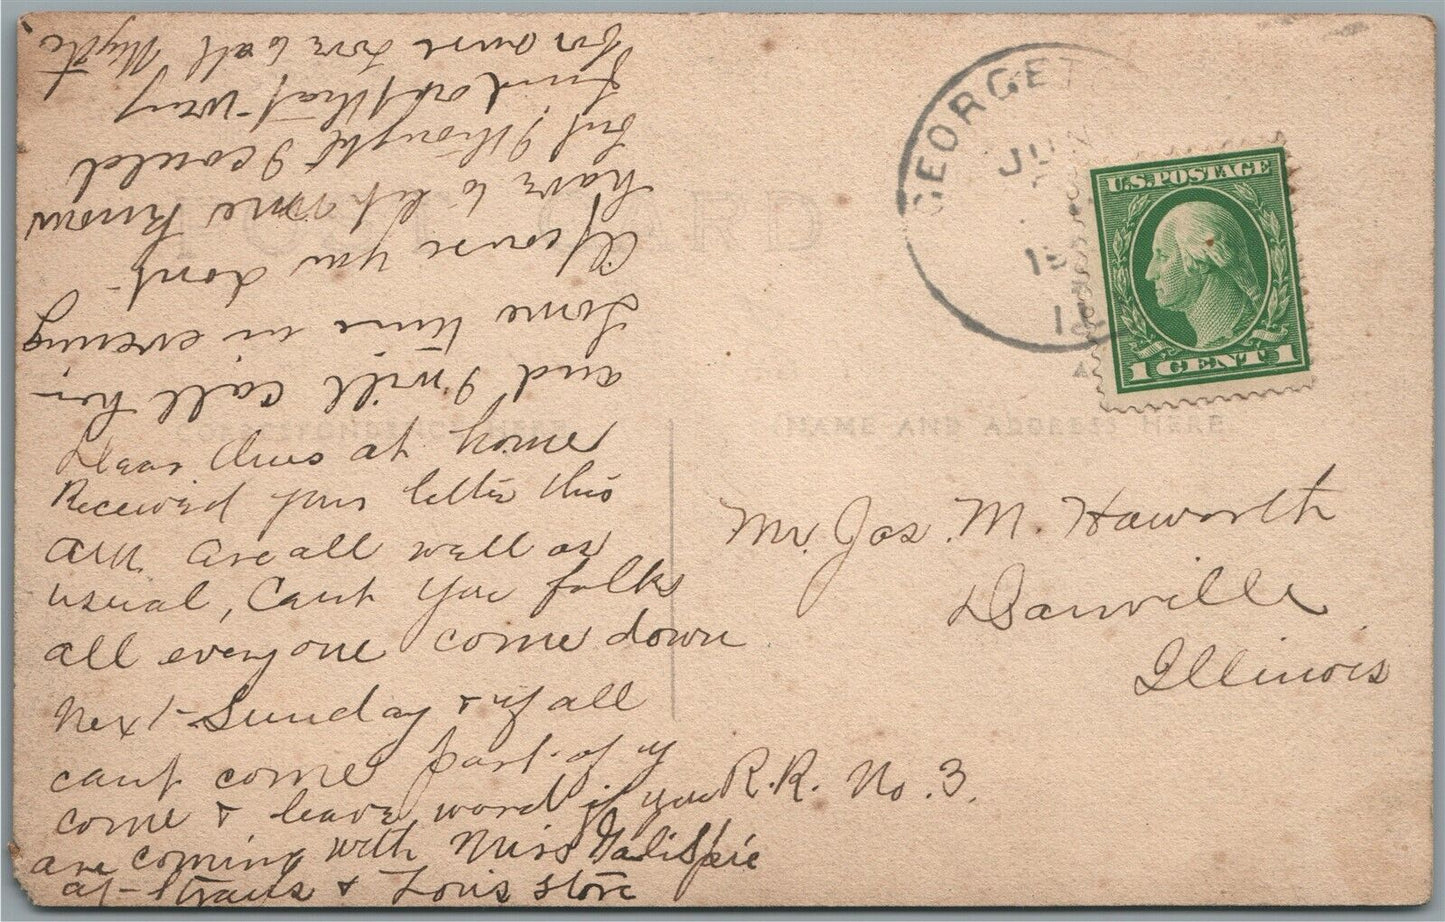 Dear Ones at home
Received your letter this
am. are all well as
usual, Cant you folks
all everyone come down
next Sunday & if all
cant come part of y
come & leave word if you
are coming with Miss Galispie
at Straus & Louis store
and I will call her
some time in evening
Of course you dont
have to let me know
but I thought I could
find out that way
for sure Love to all Myrtle
POST CARD
CORRESPONDENCE HERE
NAME AND ADDRESS HERE.
GEORGETO
JUN
19
U.S. POSTAGE
1 CENT 1
Mr. Jas. M. Haworth
Danville
Illinois
R.R. No. 3.